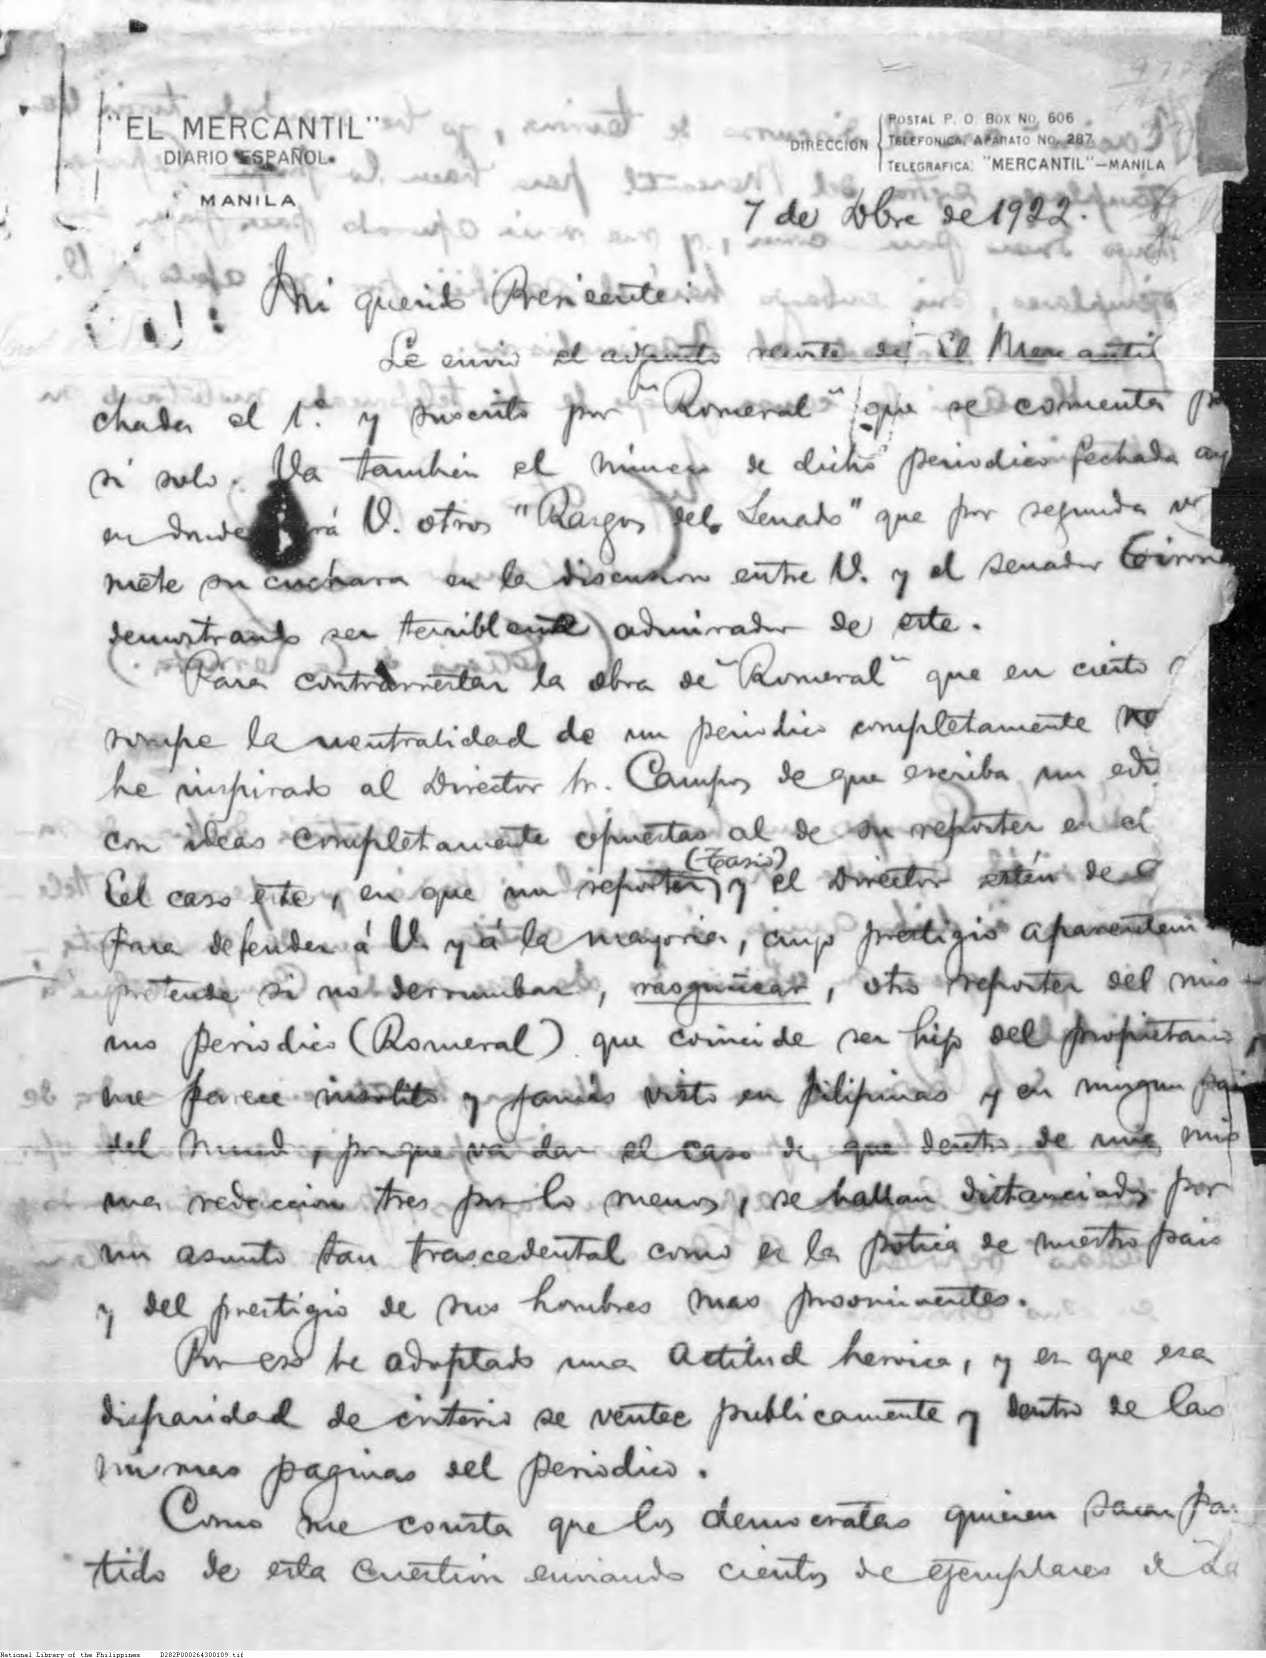 "EL MERCANTIL"
DIARIO ESPAÑOL.
MANILA
DIRECCION
POSTAL P. O. BOX NO. 606
TELEFONICA, APARATO NO. 287
TELEGRAFICA: "MERCANTIL"—MANILA
7 de Dbre de 1922.
Mi querido Presidente:
Le envio el adjunto recorte de El Mercantil
chada el 1.º y suscrito por "Romeral" que se comenta
si solo. Va tambien el número de dicho periodico fechada
en donde rá V. otros "Rasgos del Senado" que por segunda
mete su cuchara en la discusion entre V. y el senador
demostrando ser terriblemente admirador de este.
Para contrarrestar la obra de "Romeral" que en cierto
rompe la neutralidad de un periodico completamente
he inspirado al Director Sr. Campos de que escriba un edi
con ideas completamente opuestas al de su reporter en el
(Tasio)
El caso este, en que un reporter y el Director estén de
para defender á V. y á la mayoria, cuyo prestigio
pretende si no derrumbar, rasguñear, otro reporter del mis-
mo periodico (Romeral) que coincide ser hijo del propietario,
me parece insolito y jamás visto en Filipinas y en ningun pais
del mundo, porque va dar el caso de que dentro de una mis
ma redaccion tres por lo menos, se hallan distanciados por
un asunto tan trascedental como es la potica de nuestro pais
y del prestigio de sus hombres mas prominentes.
Por eso he adoptado una actitud heroica, y es que esa
disparidad de criterio se ventee publicamente y dentro de las
mismas paginas del periodico.
Como me consta que los democratas quieren sacar par
tido de esta cuestion enviando cientos de ejemplares de "La
National Library of the Philippines D282P000264300109.tif